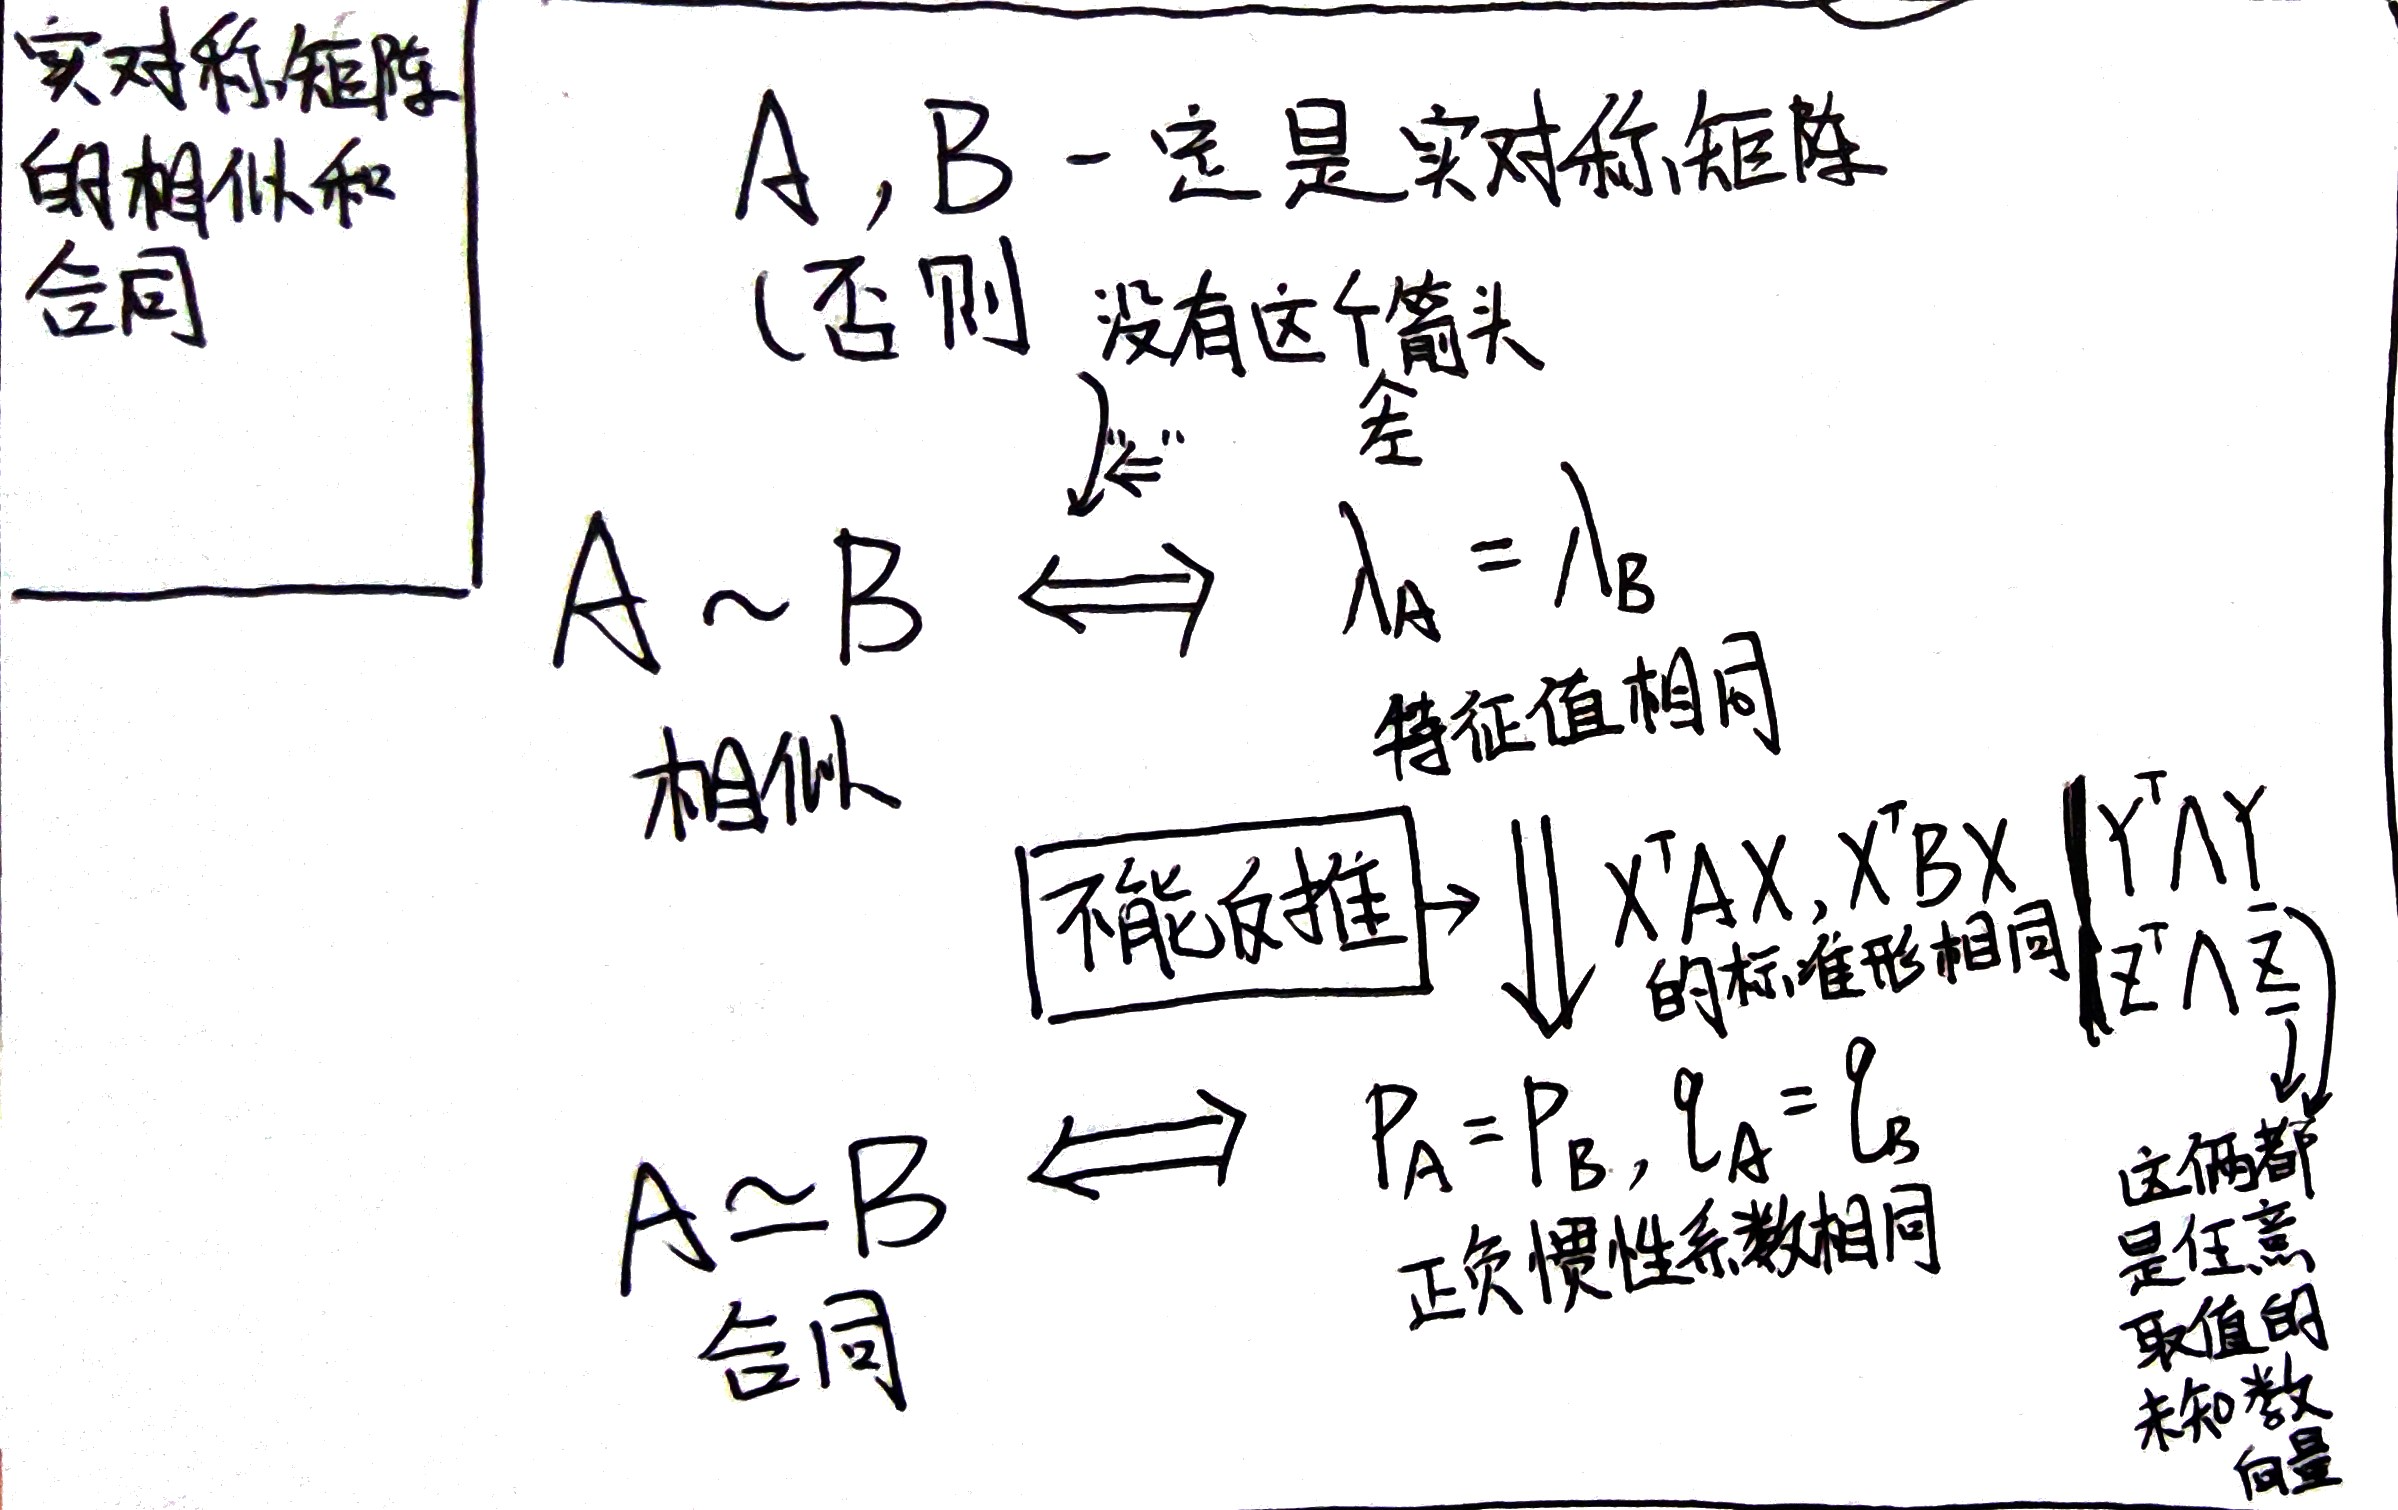 实对称矩阵
的相似和
合同
A,B一定是实对称矩阵
(否则 没有这个箭头
左
"⇐"
A ~ B ⟺ λA = λB
相似
特征值相同
不能反推 → ⇓ XᵀAX, XᵀBX
的标准形相同
YᵀΛY
ZᵀΛZ
A ≃ B ⟺ PA = PB, qA = qB
合同
正负惯性系数相同
这俩都
是任意
取值的
未知数
向量